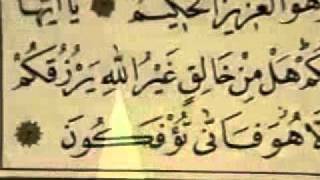 وَهُوَ الْعَزِيزُ الْحَكِيمُ يَا أَيُّهَا
كُمْ هَلْ مِنْ خَالِقٍ غَيْرُ اللّٰهِ يَرْزُقُكُمْ
لَّا هُوَ فَاَنّٰى تُؤْفَكُونَ